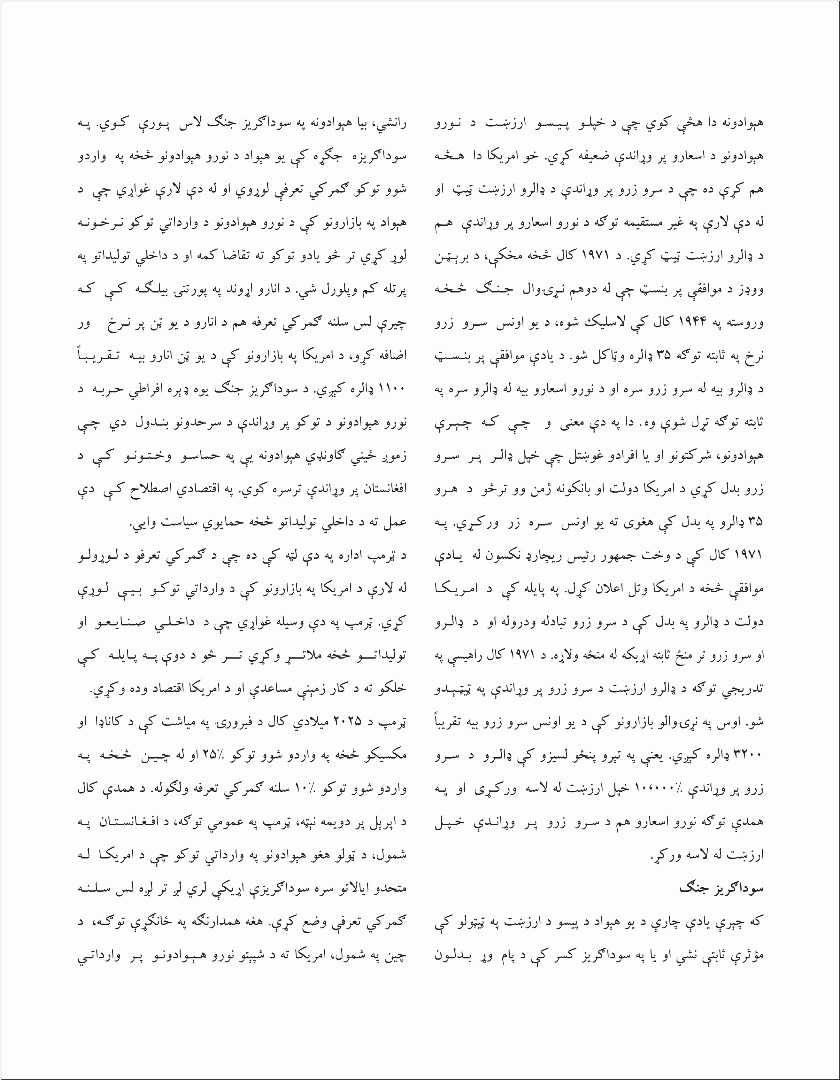 هېوادونه دا هڅې کوي چې د خپلو پیسو ارزښت د نورو
هېوادونو د اسعارو پر وړاندې ضعیفه کړي. خو امریکا دا هڅه
هم کړې ده چې د سرو زرو پر وړاندې د ډالرو ارزښت ټیټ او
له دې لارې په غیر مستقیمه توګه د نورو اسعارو پر وړاندې هم
د ډالرو ارزښت ټیټ کړي. د ۱۹۷۱ کال څخه مخکې، د برېټن
ووډز د موافقې پر بنسټ چې له دوهم نړۍوال جنګ څخه
وروسته په ۱۹۴۴ کال کې لاسلیک شوه، د یو اونس سرو زرو
نرخ په ثابته توګه ۳۵ ډالره وټاکل شو. د یادې موافقې پر بنسټ
د ډالرو بیه له سرو زرو سره او د نورو اسعارو بیه له ډالرو سره په
ثابته توګه تړل شوې وه. دا په دې معنی و چې که چېرې
هېوادونو، شرکتونو او یا افرادو غوښتل چې خپل ډالر پر سرو
زرو بدل کړي د امریکا دولت او بانکونه ژمن وو ترڅو د هرو
۳۵ ډالرو په بدل کې هغوی ته یو اونس سره زر ورکړي. په
۱۹۷۱ کال کې د وخت جمهور رئیس ریچارډ نکسون له یادې
موافقې څخه د امریکا وتل اعلان کړل. په پایله کې د امریکا
دولت د ډالرو په بدل کې د سرو زرو تبادله ودروله او د ډالرو
او سرو زرو تر منځ ثابته اړیکه له منځه ولاړه. د ۱۹۷۱ کال راهیسې په
تدریجي توګه د ډالرو ارزښت د سرو زرو پر وړاندې په ټیټېدو
شو. اوس په نړۍوالو بازارونو کې د یو اونس سرو زرو بیه تقریباً
۳۲۰۰ ډالره کیږي. یعنې په تېرو پنځو لسیزو کې ډالرو د سرو
زرو پر وړاندې ٪۱۰،۰۰۰ خپل ارزښت له لاسه ورکړی او په
همدې توګه نورو اسعارو هم د سرو زرو پر وړاندې خپل
ارزښت له لاسه ورکړ.
سوداګریز جنګ
که چېرې یادې چارې د یو هېواد د پیسو د ارزښت په ټیټولو کې
مؤثرې ثابتې نشي او یا په سوداګریز کسر کې د پام وړ بدلون
رانشي، بیا هېوادونه په سوداګریز جنګ لاس پورې کوي. په
سوداګریزه جګړه کې یو هېواد د نورو هېوادونو څخه په واردو
شوو توکو ګمرکي تعرفې لوړوي او له دې لارې غواړي چې د
هېواد په بازارونو کې د نورو هېوادونو د وارداتي توکو نرخونه
لوړ کړي تر څو یادو توکو ته تقاضا کمه او د داخلي تولیداتو په
پرتله کم وپلورل شي. د انارو اړوند په پورتنۍ بېلګه کې که
چیرې لس سلنه ګمرکي تعرفه هم د انارو د یو ټن پر نرخ ور
اضافه کړو، د امریکا په بازارونو کې د یو ټن انارو بیه تقریباً
۱۱۰۰ ډالره کیږي. د سوداګریز جنګ یوه ډېره افراطي حربه د
نورو هېوادونو د توکو پر وړاندې د سرحدونو بندول دي چې
زموږ ځینې ګاونډي هېوادونه یې په حساسو وختونو کې د
افغانستان پر وړاندې ترسره کوي. په اقتصادي اصطلاح کې دې
عمل ته د داخلي تولیداتو څخه حمایوي سیاست وایي.
د ټرمپ اداره په دې لټه کې ده چې د ګمرکي تعرفو د لوړولو
له لارې د امریکا په بازارونو کې د وارداتي توکو بیې لوړې
کړي. ټرمپ په دې وسیله غواړي چې د داخلي صنایعو او
تولیداتو څخه ملاتړ وکړي تر څو د دوې په پایله کې
خلکو ته د کار زمینې مساعدې او د امریکا اقتصاد وده وکړي.
ټرمپ د ۲۰۲۵ میلادي کال د فبرورۍ په میاشت کې د کاناډا او
مکسیکو څخه په واردو شوو توکو ٪۲۵ او له چین څخه په
واردو شوو توکو ٪۱۰ سلنه ګمرکي تعرفه ولګوله. د همدې کال
د اپرېل پر دویمه نېټه، ټرمپ په عمومي توګه، د افغانستان په
شمول، د ټولو هغو هېوادونو په وارداتي توکو چې د امریکا له
متحدو ایالاتو سره سوداګریزې اړیکې لري لږ تر لږه لس سلنه
ګمرکي تعرفې وضع کړې. هغه همدارنګه په ځانګړې توګه، د
چین په شمول، امریکا ته د شپېتو نورو هېوادونو پر وارداتي